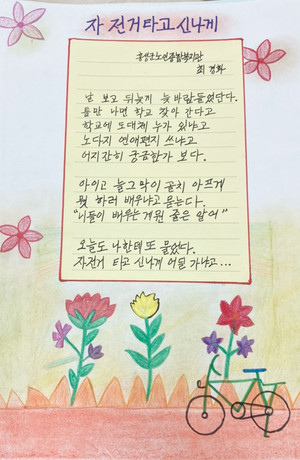 자전거타고 신나게
홍성군노인종합복지관
최경화
날 보고 뒤늦게 늦바람들었단다.
틈만 나면 학교 찾아 간다고
학교에 도대체 누가 있냐고
노다지 연애편지 쓰냐고
어지간히 궁금한가 보다.
아이고 늘그막이 골치 아프게
뭣 하러 배우냐고 묻는다.
"니들이 배우는게 뭔 줄은 알어"
오늘도 나한테 또 물었다.
자전거 타고 신나게 어딜 가냐고...